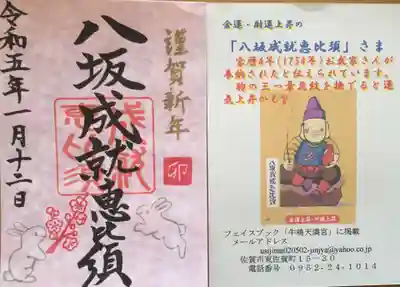 謹賀新年
卯
八坂成就恵比須
令和五年一月十二日
金運・財運上昇の
「八坂成就恵比須」さま
宝暦4年(1754年)お武家さんが
奉納されたと伝えられています。
胸の三つ葉蔦紋を撫でると運
気上昇かも⁉
八坂成就恵比須
金運上昇・財運上昇
フェイスブック「牛嶋天満宮」に掲載
メールアドレス
usijima020502-jinjya@yahoo.co.jp
佐賀市東佐賀町15－30
電話番号 0952-24-1014